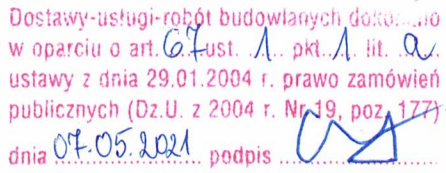 Dostawy-usługi-robót budowlanych
w oparciu o art. 67 ust. 1 pkt. 1 lit. a
ustawy z dnia 29.01.2004 r. prawo zamówień
publicznych (Dz.U. z 2004 r. Nr 19, poz. 177)
dnia 07.05.2021 podpis